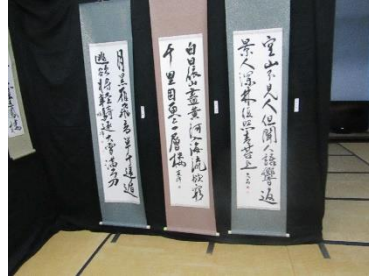 空山不見人但聞人語響返
景入深林復照青苔上
白日依山盡黃河入海流欲窮
千里目更上一層樓
月黑雁飛高單于夜遁
逃欲將輕騎逐大雪滿弓刀